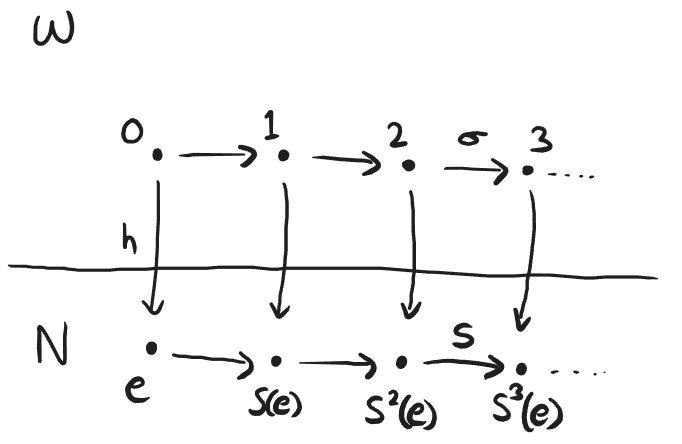 ω
0 1 2 σ 3 .....
h
N
S
e S(e) S²(e) S³(e) .....